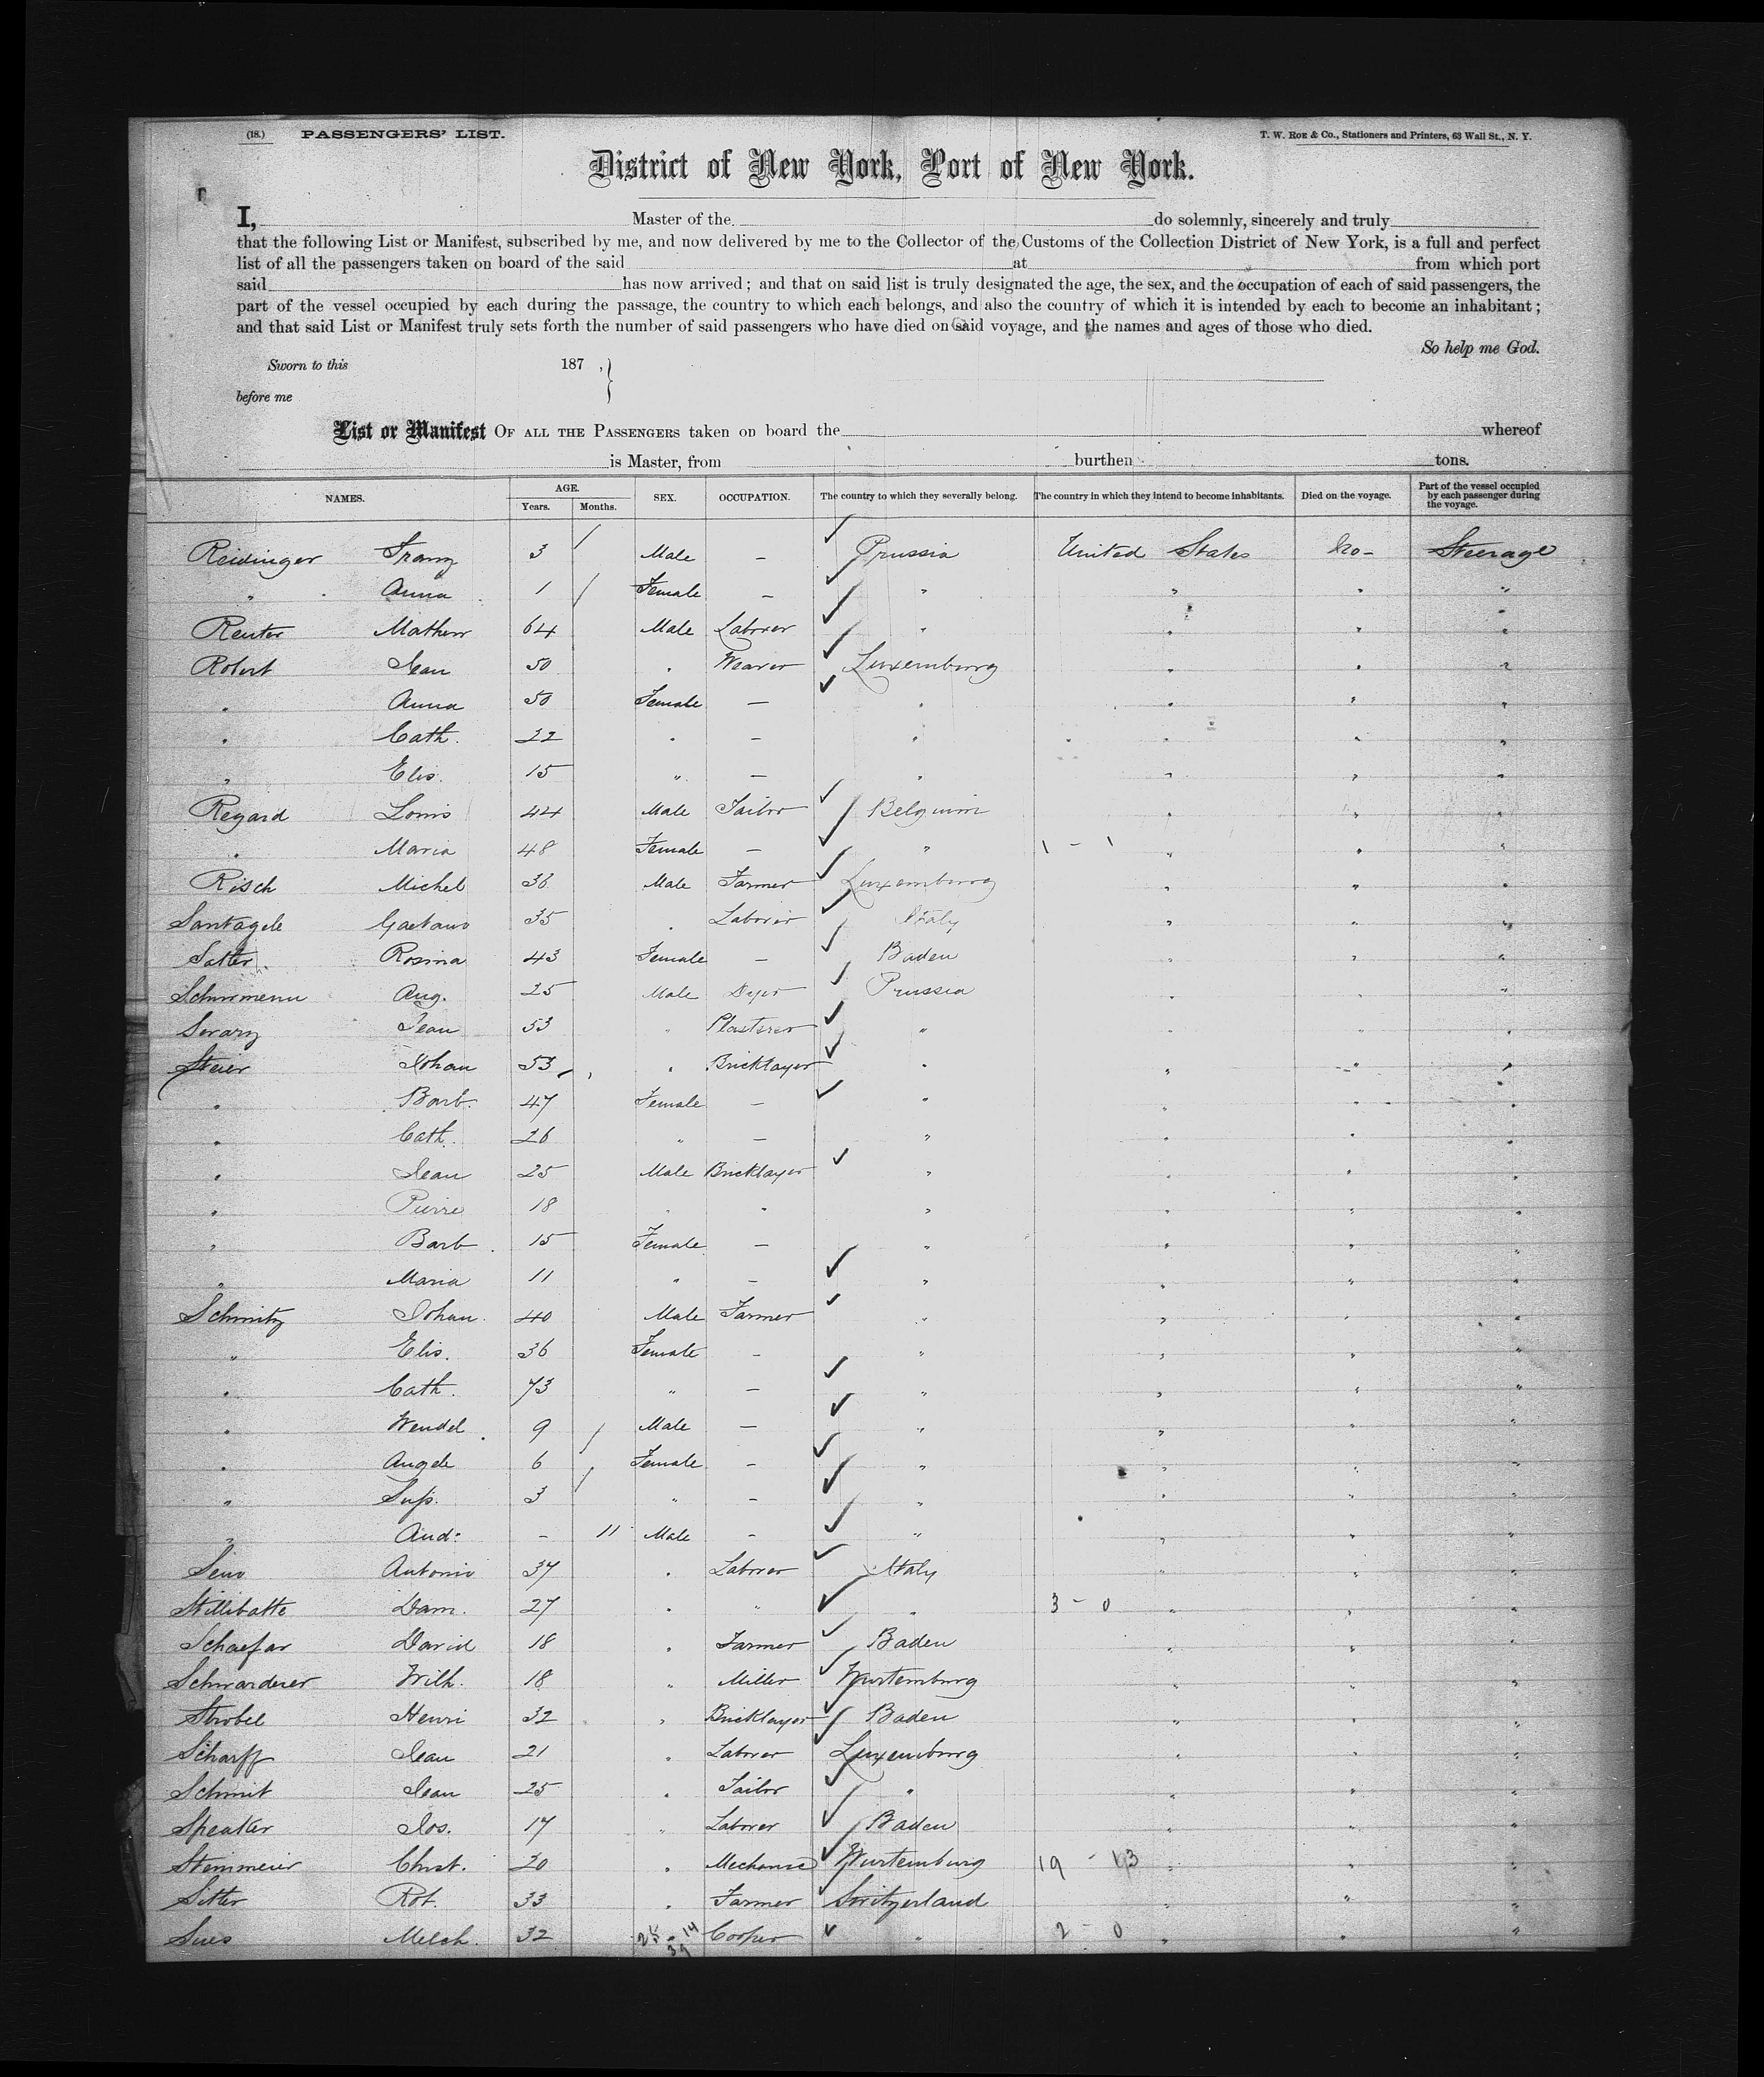 (18.) PASSENGERS' LIST. T. W. ROE & CO., Stationers and Printers, 63 Wall St., N. Y.
District of New York, Port of New York.
I, Master of the do solemnly, sincerely and truly
that the following List or Manifest, subscribed by me, and now delivered by me to the Collector of the Customs of the Collection District of New York, is a full and perfect
list of all the passengers taken on board of the said at from which port
said has now arrived; and that on said list is truly designated the age, the sex, and the occupation of each of said passengers, the
part of the vessel occupied by each during the passage, the country to which each belongs, and also the country of which it is intended by each to become an inhabitant;
and that said List or Manifest truly sets forth the number of said passengers who have died on said voyage, and the names and ages of those who died.
So help me God.
Sworn to this 187 , }
before me
List or Manifest OF ALL THE PASSENGERS taken on board the whereof
is Master, from burthen tons.
NAMES. AGE. Years. Months. SEX. OCCUPATION. The country to which they severally belong. The country in which they intend to become inhabitants. Died on the voyage. Part of the vessel occupied by each passenger during the voyage.
Reidinger Franz 3 Male - Prussia United States No- Steerage
" Anna 1 Female - " " " "
Reuter Mathew 64 Male Laborer " " " "
Robert Jean 50 " Weaver Luxemburg " " "
" Anna 50 Female - " " " "
" Cath. 22 " - " " " "
" Elis. 15 " - " " " "
Regard Louis 44 Male Tailor Belgium " " "
" Maria 48 Female - " 1 - 1 " " "
Risch Michel 36 Male Farmer Luxemburg " " "
Santagele Gaetano 35 " Laborer Italy " " "
Satter Rosina 43 Female - Baden " " "
Aug. 25 Male Dyer Prussia " " "
Jean 53 " Plasterer " " " "
Steier Johan 53 " Bricklayer " " " "
" Barb. 47 Female - " " " "
" Cath. 26 " - " " " "
" Jean 25 Male Bricklayer " " " "
" Pierre 18 " " " " " "
" Barb. 15 Female - " " " "
" Maria 11 " - " " " "
Schmitz Johan 40 Male Farmer " " " "
" Elis. 36 Female - " " " "
" Cath. 73 " - " " " "
" Wendel 9 Male - " " " "
" Angele 6 Female - " " " "
" Sus. 3 " - " " " "
" And. - 11 Male - " " " "
Seno Antonio 37 " Laborer Italy " " "
Stillibatte Dam. 27 " " " 3 - 0 " " "
Schaefar David 18 " Farmer Baden " " "
Schwarderer Wilh. 18 " Miller Wurtemburg " " "
Strobel Henri 32 " Bricklayer Baden " " "
Scharff Jean 21 " Laborer Luxemburg " " "
Schmit Jean 25 " Tailor " " " "
Speaker Jos. 17 " Laborer Baden " " "
Stemmeier Christ. 20 " Mechanic Wurtemburg 19 - 13 " " "
Sitter Rob. 33 " Farmer Switzerland " " "
Sues Melch. 32 25 " 14 Cooper " 2 - 0 " " "
39